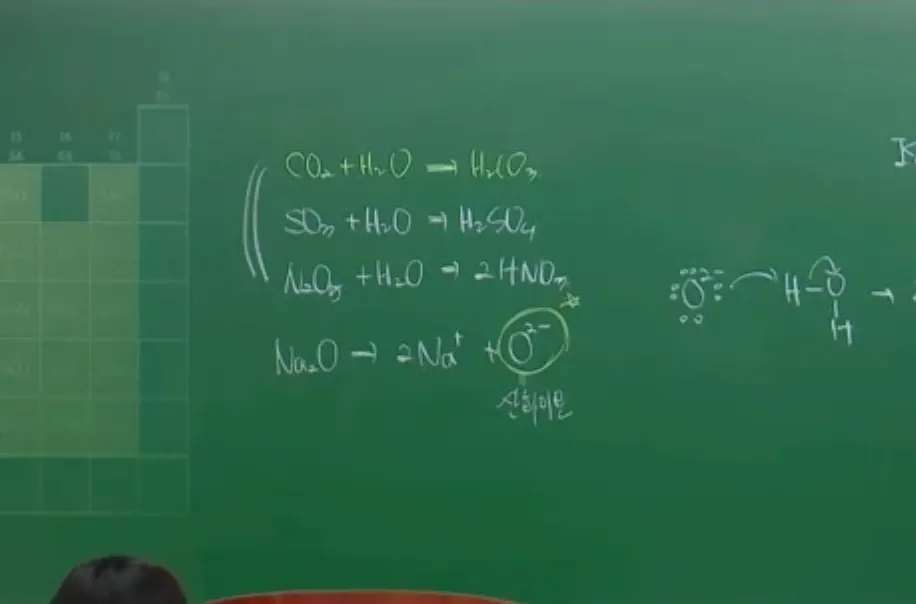 CO₂ + H₂O → H₂CO₃
SO₃ + H₂O → H₂SO₄
N₂O₅ + H₂O → 2HNO₃
Na₂O → 2Na⁺ + O²⁻
산화이온
O²⁻ H-O →
H
K